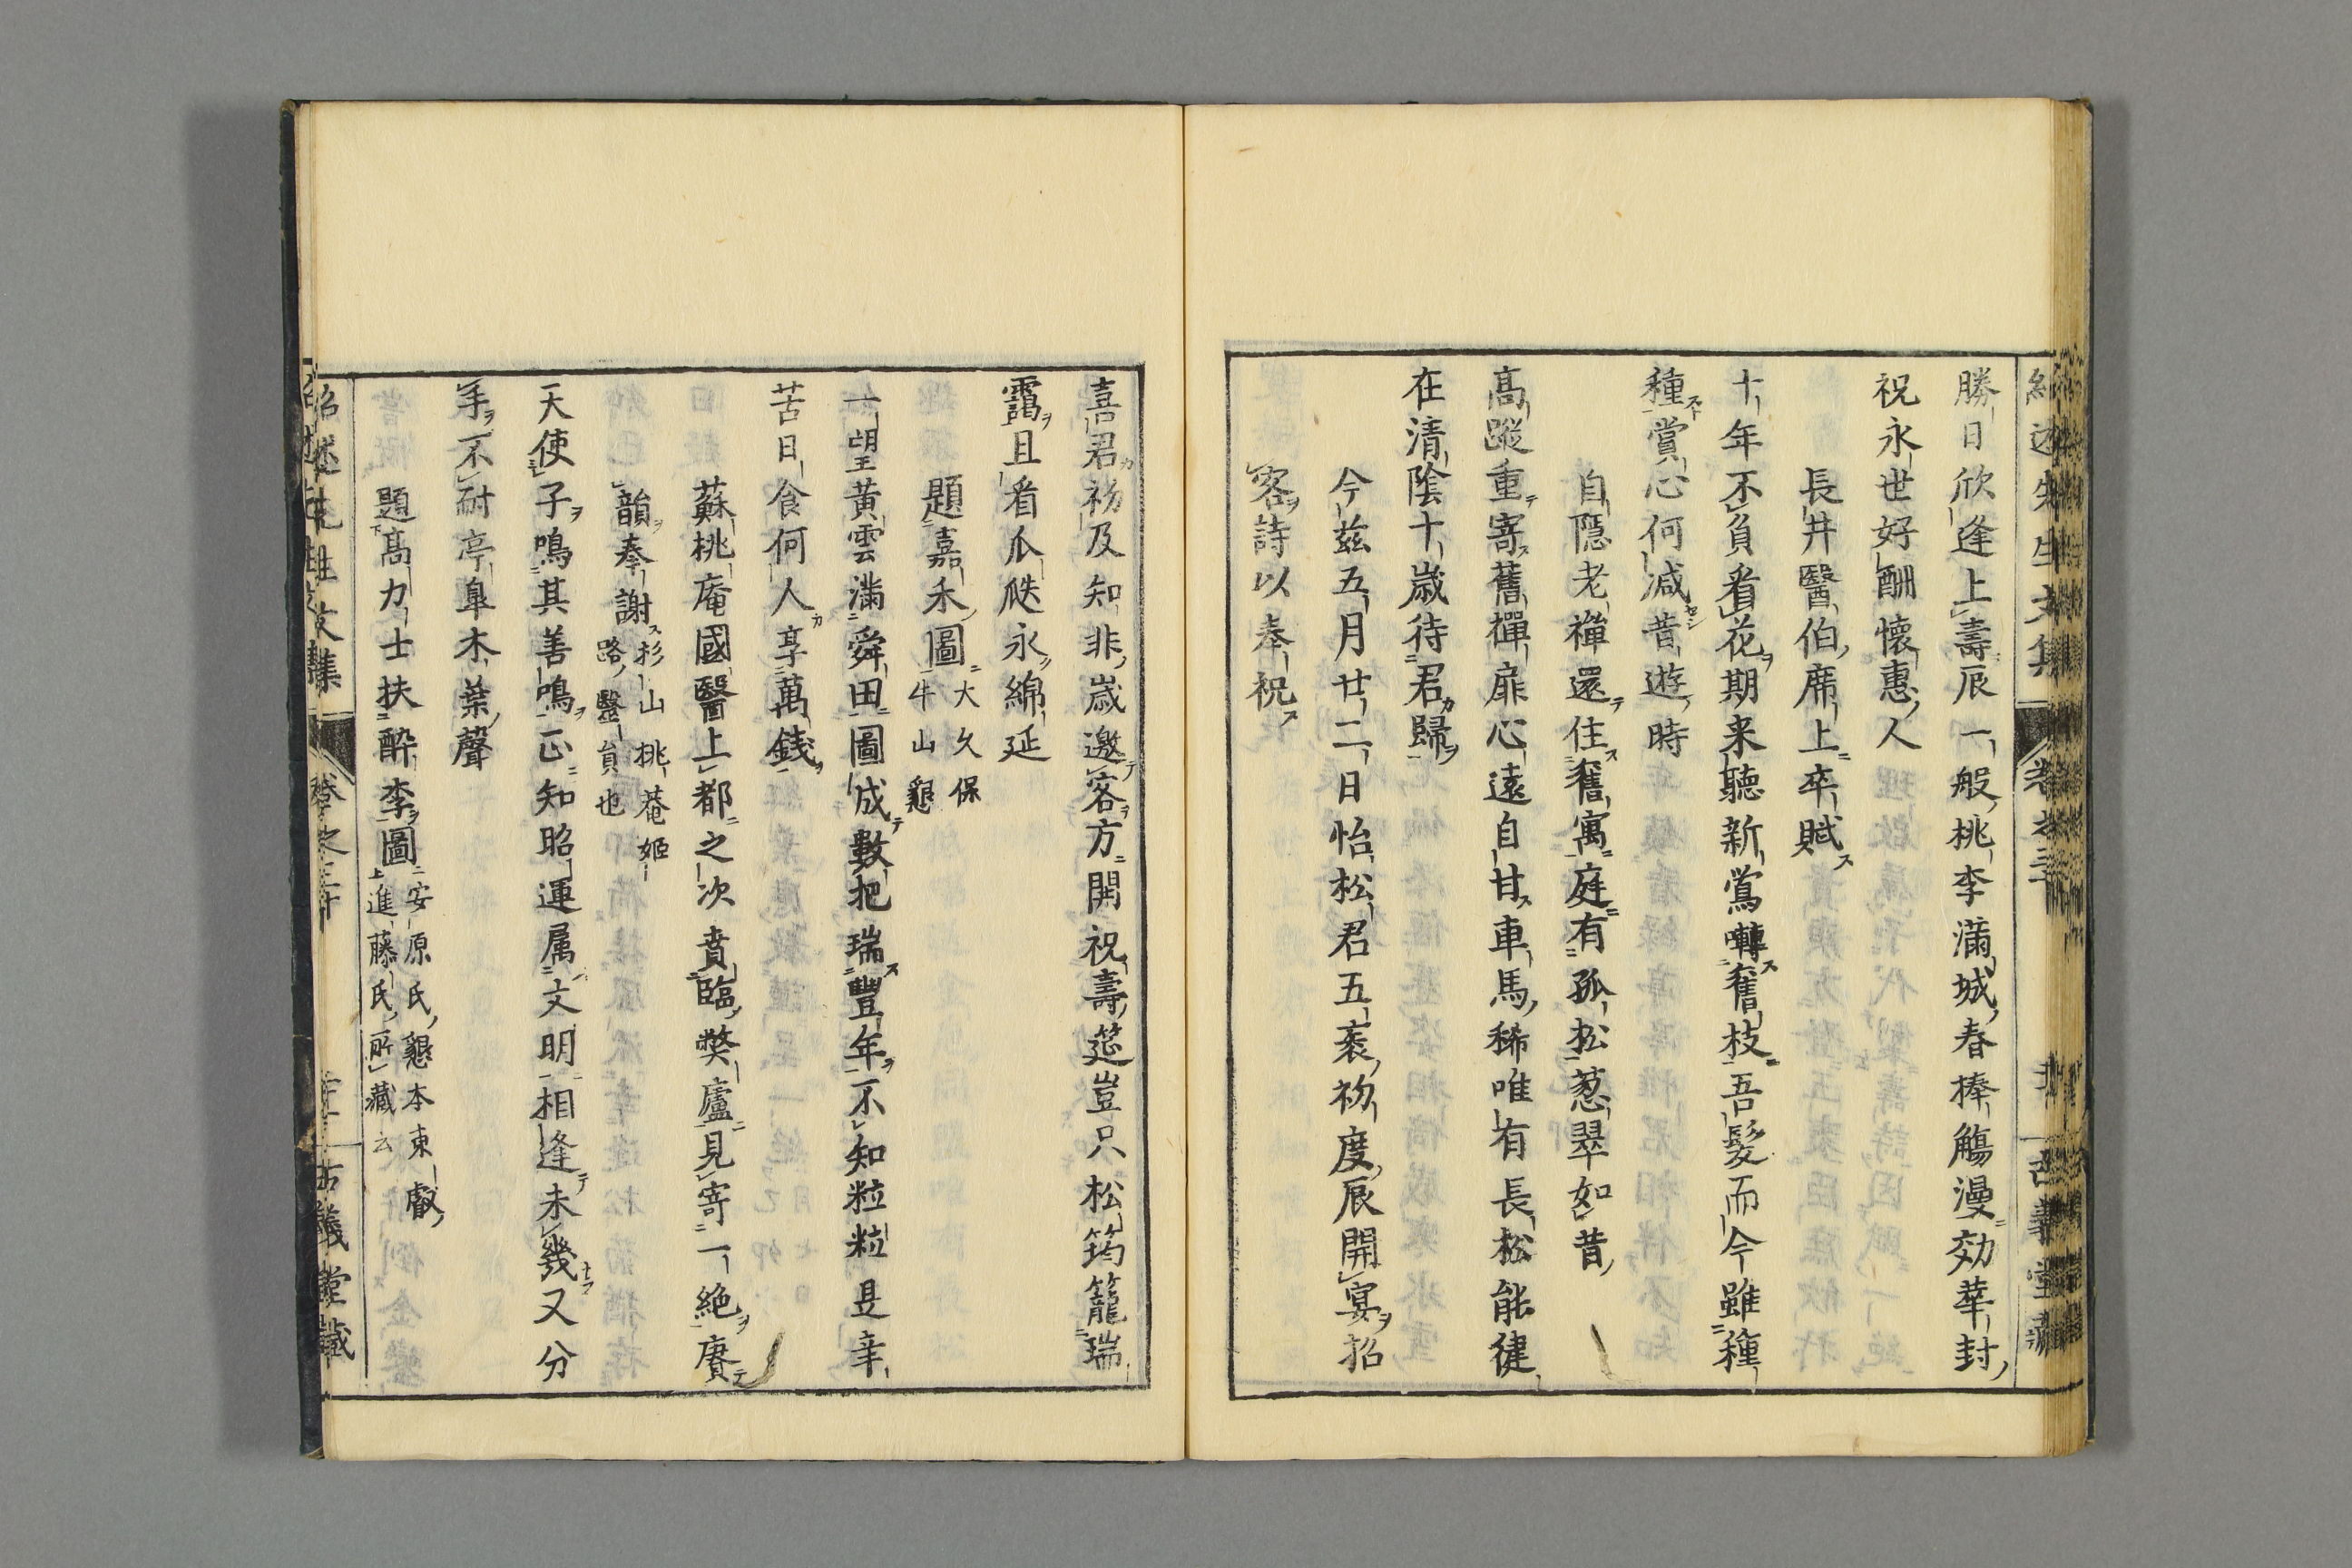 勝日欣逢上壽辰一般桃李滿城春捧觴漫效華封
祝永世好酬懷惠人
長井醫伯席上卒賦
十年不負看花期来聽新鴬囀舊枝吾髮而今雖種
種賞心何減昔遊時
自隱老禪還住舊寓庭有孤松葱翠如昔
高蹤重寄舊禪扉心遠自甘車馬稀唯有長松能健
在清陰十歳待君歸
今兹五月廿二日怡松君五袠初度辰開宴招
客詩以奉祝
喜君初及知非歳邀客方開祝壽筵豈只松筠籠瑞
靄且看瓜瓞永綿延
題嘉禾圖大久保
牛山懇
一望黃雲滿舜田圖成數把瑞豐年不知粒粒是辛
苦日食何人享萬錢
蘇桃庵國醫上都之次賁臨弊廬見寄一絶賡
韻奉謝杉山桃菴姬
路醫員也
天使子鳴其善鳴正知昭運属文明相逢未幾又分
手不耐亭皐木葉聲
題高力士扶醉李圖安原氏懇本東叡
上進藤氏所藏云
紹述先生文集 卷之三十 古義堂藏